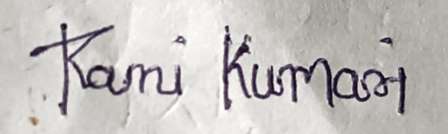 Kami Kumari